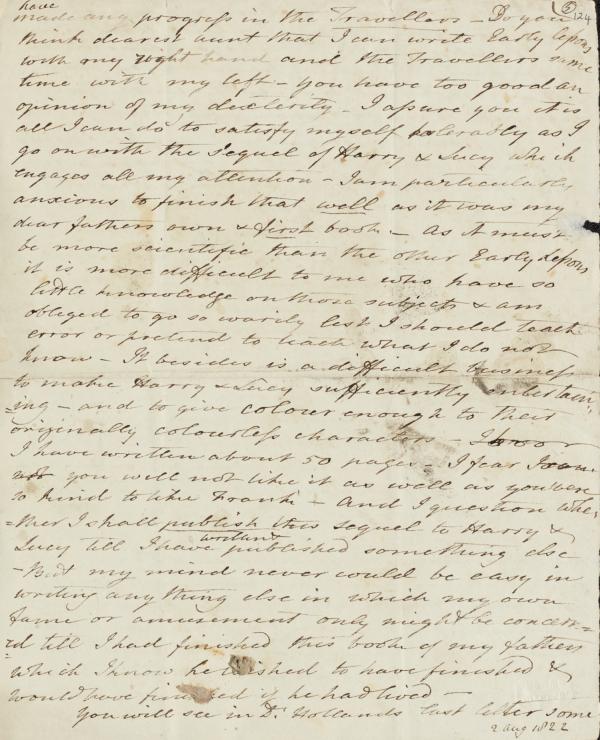 have
made any progress in the Travellers – Do you
(5)
124
think dearest aunt that I can write Early lessons
with my right hand and the Travellers same
time with my left – you have too good an
opinion of my dexterity – I assure you it is
all I can do to satisfy myself tolerably as I
go on with the sequel of Harry & Lucy which
engages all my attention – I am particularly
anxious to finish that well as it was my
dear fathers own & first book – As it must
be more scientific than the other Early Lessons
it is more difficult to me who have so
little knowledge on those subjects & am
obliged to go so warily lest I should teach
error or pretend to teach what I do not
know – It besides is a difficult business
to make Harry & Lucy sufficiently entertain=
=ing – and to give colour enough to their
originally colourless characters –
I have written about 50 pages – I fear
you will not like it as well as you were
so kind to like Frank – And I question whe=
=ther I shall publish this sequel to Harry &
Lucy till I have written published something else
– But my mind never could be easy in
writing any thing else in which my own
fame or amusement only might be concern=
=ed till I had finished this book of my fathers
which I know he wished to have finished &
would have finished if he had lived –
You will see in Dr. Hollands last letter some
2 Aug 1822